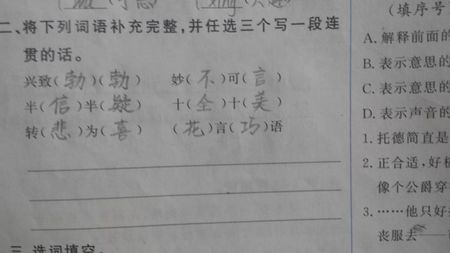 二、将下列词语补充完整,并任选三个写一段连
贯的话。
兴致(勃)(勃) 妙(不)可(言)
半(信)半(疑) 十(全)十(美)
转(悲)为(喜) (花)言(巧)语
三、选词填空。
(填序号
A.解释前面的
B.表示意思的
C.表示意思的
D.表示声音的
1.托德简直是
2.正合适,好极
像个公爵穿
3.……他只好
丧服去——